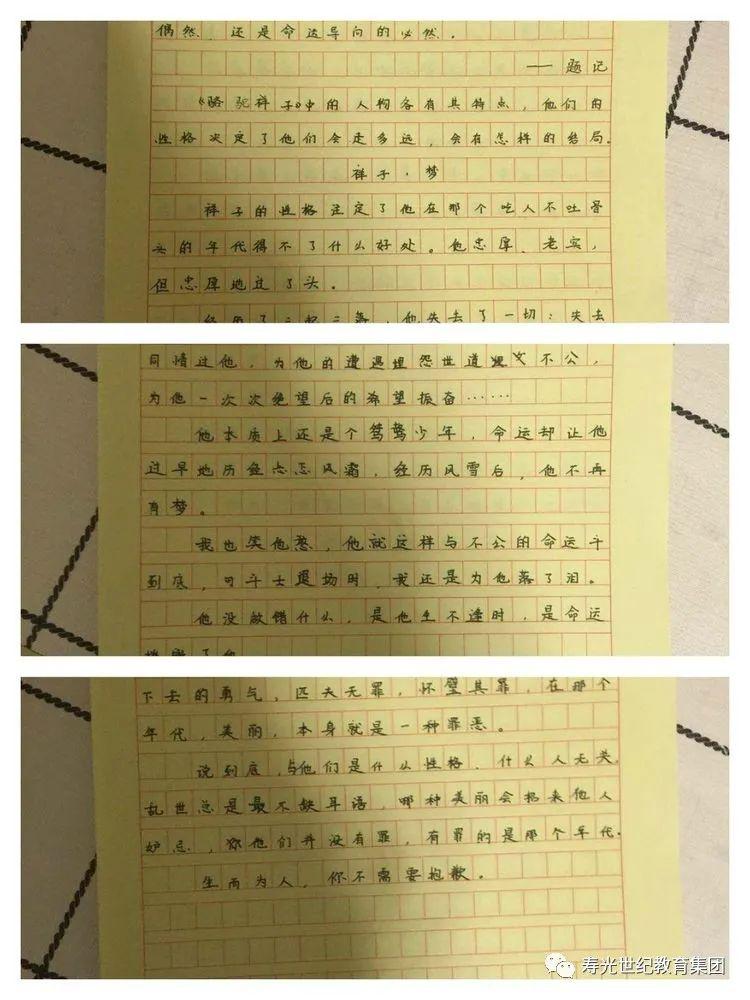 偶然,还是命运导向的必然。
——题记
《骆驼祥子》中的人物各有其特点,他们的
性格决定了他们会走多远,会有怎样的结局。
祥子·梦
祥子的性格注定了他在那个吃人不吐骨
头的年代得不了什么好处。他忠厚、老实,
但忠厚地过了头。
经历了三起三落,他失去了一切:失去
同情过他,为他的遭遇埋怨世道 不公,
为他一次次绝望后的希望振奋……
他本质上还是个 少年,命运却让他
过早地历经 风霜,经历风雪后,他不再
有梦。
我也笑他愁,他就这样与不公的命运斗
到底,可斗士退场时,我还是为他落了泪。
他没做错什么,是他生不逢时,是命运
了他
下去的勇气,匹夫无罪,怀璧其罪,在那个
年代,美丽,本身就是一种罪恶。
说到底,与他们是什么性格、什么人无关,
乱世总是最不缺耳语,哪种美丽会招来他人
妒忌,你他们并没有罪,有罪的是那个年代。
生而为人,你不需要抱歉。
寿光世纪教育集团